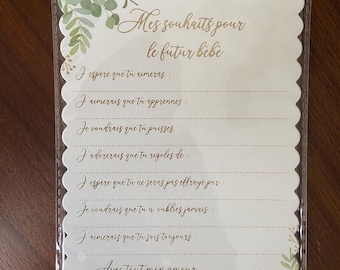 Mes souhaits pour
le futur bébé
J'espere que tu aimeras :
J'aimerais que tu apprennes :
Je voudrais que tu puisses
J'adorerais que tu rigoles de :
J'espere que tu ne seras pas effraye par :
Je voudrais que tu n'oublies jamais :
J'aimerais que tu sois toujours :
Avec tout mon amour